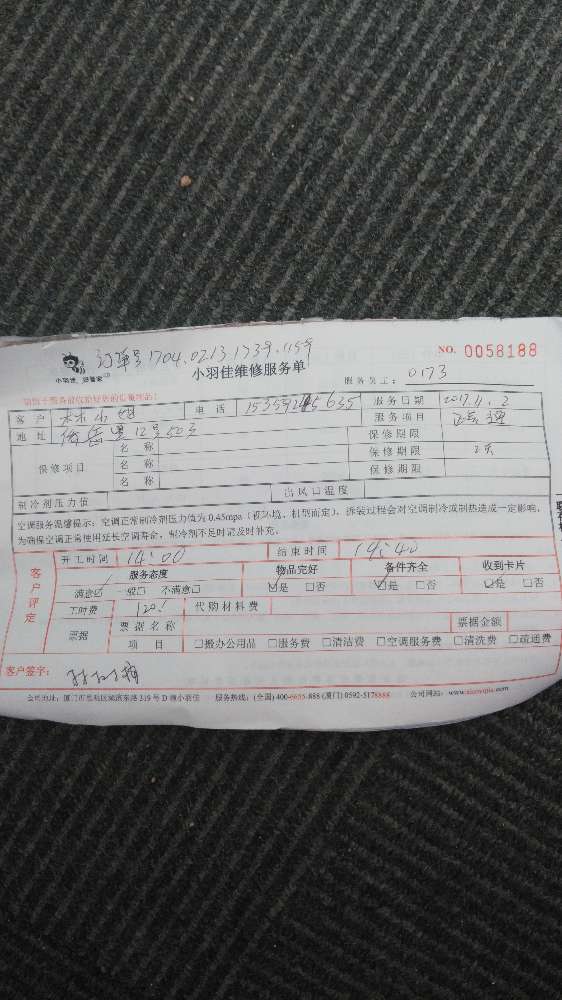 订单号1704.0213.1739.1159
NO. 0058188
小羽佳.好管家
小羽佳维修服务单
服务员工: 0173
客户 林小姐 电话 服务日期 2017.11.2
地址 12号503 服务项目
保修期限
保修项目 名称 保修期限 2天
名称
名称 保修期限
制冷剂压力值 出风口温度
空调服务温馨提示:空调正常制冷剂压力值为0.45mpa(视环境、机型而定)。拆装过程会对空调制冷或制热造成一定影响,
为确保空调正常使用延长空调寿命,制冷剂不足时需及时补充。
客户评定
开工时间 14:00 结束时间 14:40
服务态度 物品完好 备件齐全 收到卡片
满意☑ 一般□ 不满意□ ☑是 □否 ☑是 □否 ☑是 □否
工时费 120 代购材料费
票据 票据名称 票据金额
项目 □搬办公用品 □服务费 □清洁费 □空调服务费 □清洗费 □疏通费
客户签字:
公司地址:厦门市思明区 319号D栋小羽佳 服务热线:(全国)400-6655-888 (厦门)0592-5178888 公司网站:www.xiaoyujia.com